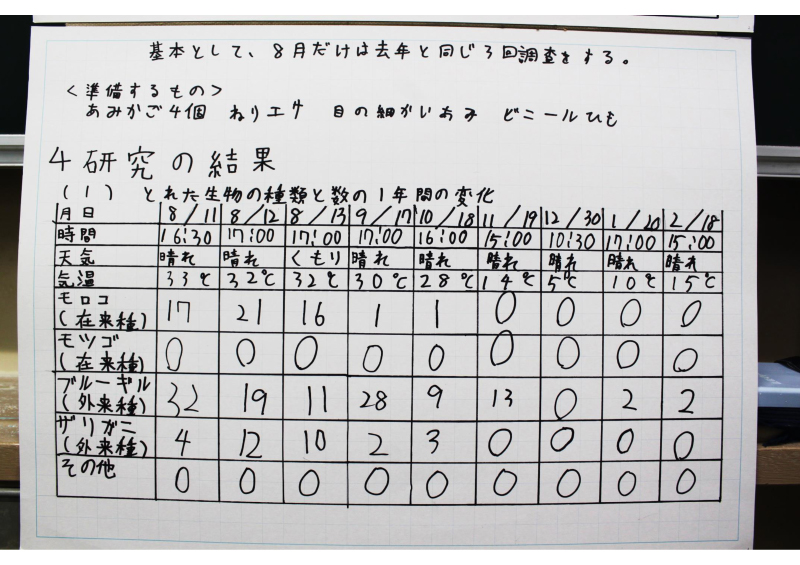 基本として、8月だけは去年と同じ3回調査をする。
<準備するもの>
あみかご4個 ねりエサ 目の細かいあみ ビニールひも
4 研究の結果
(1) とれた生物の種類と数の1年間の変化
月日 8/11 8/12 8/13 9/17 10/18 11/19 12/30 1/20 2/18
時間 16:30 17:00 17:00 17:00 16:00 15:00 10:30 17:00 15:00
天気 晴れ 晴れ くもり 晴れ 晴れ 晴れ 晴れ 晴れ 晴れ
気温 33℃ 32℃ 32℃ 30℃ 28℃ 14℃ 5℃ 10℃ 15℃
モロコ
(在来種) 17 21 16 1 1 0 0 0 0
モツゴ
(在来種) 0 0 0 0 0 0 0 0 0
ブルーギル
(外来種) 32 19 11 28 9 13 0 2 2
ザリガニ
(外来種) 4 12 10 2 3 0 0 0 0
その他 0 0 0 0 0 0 0 0 0